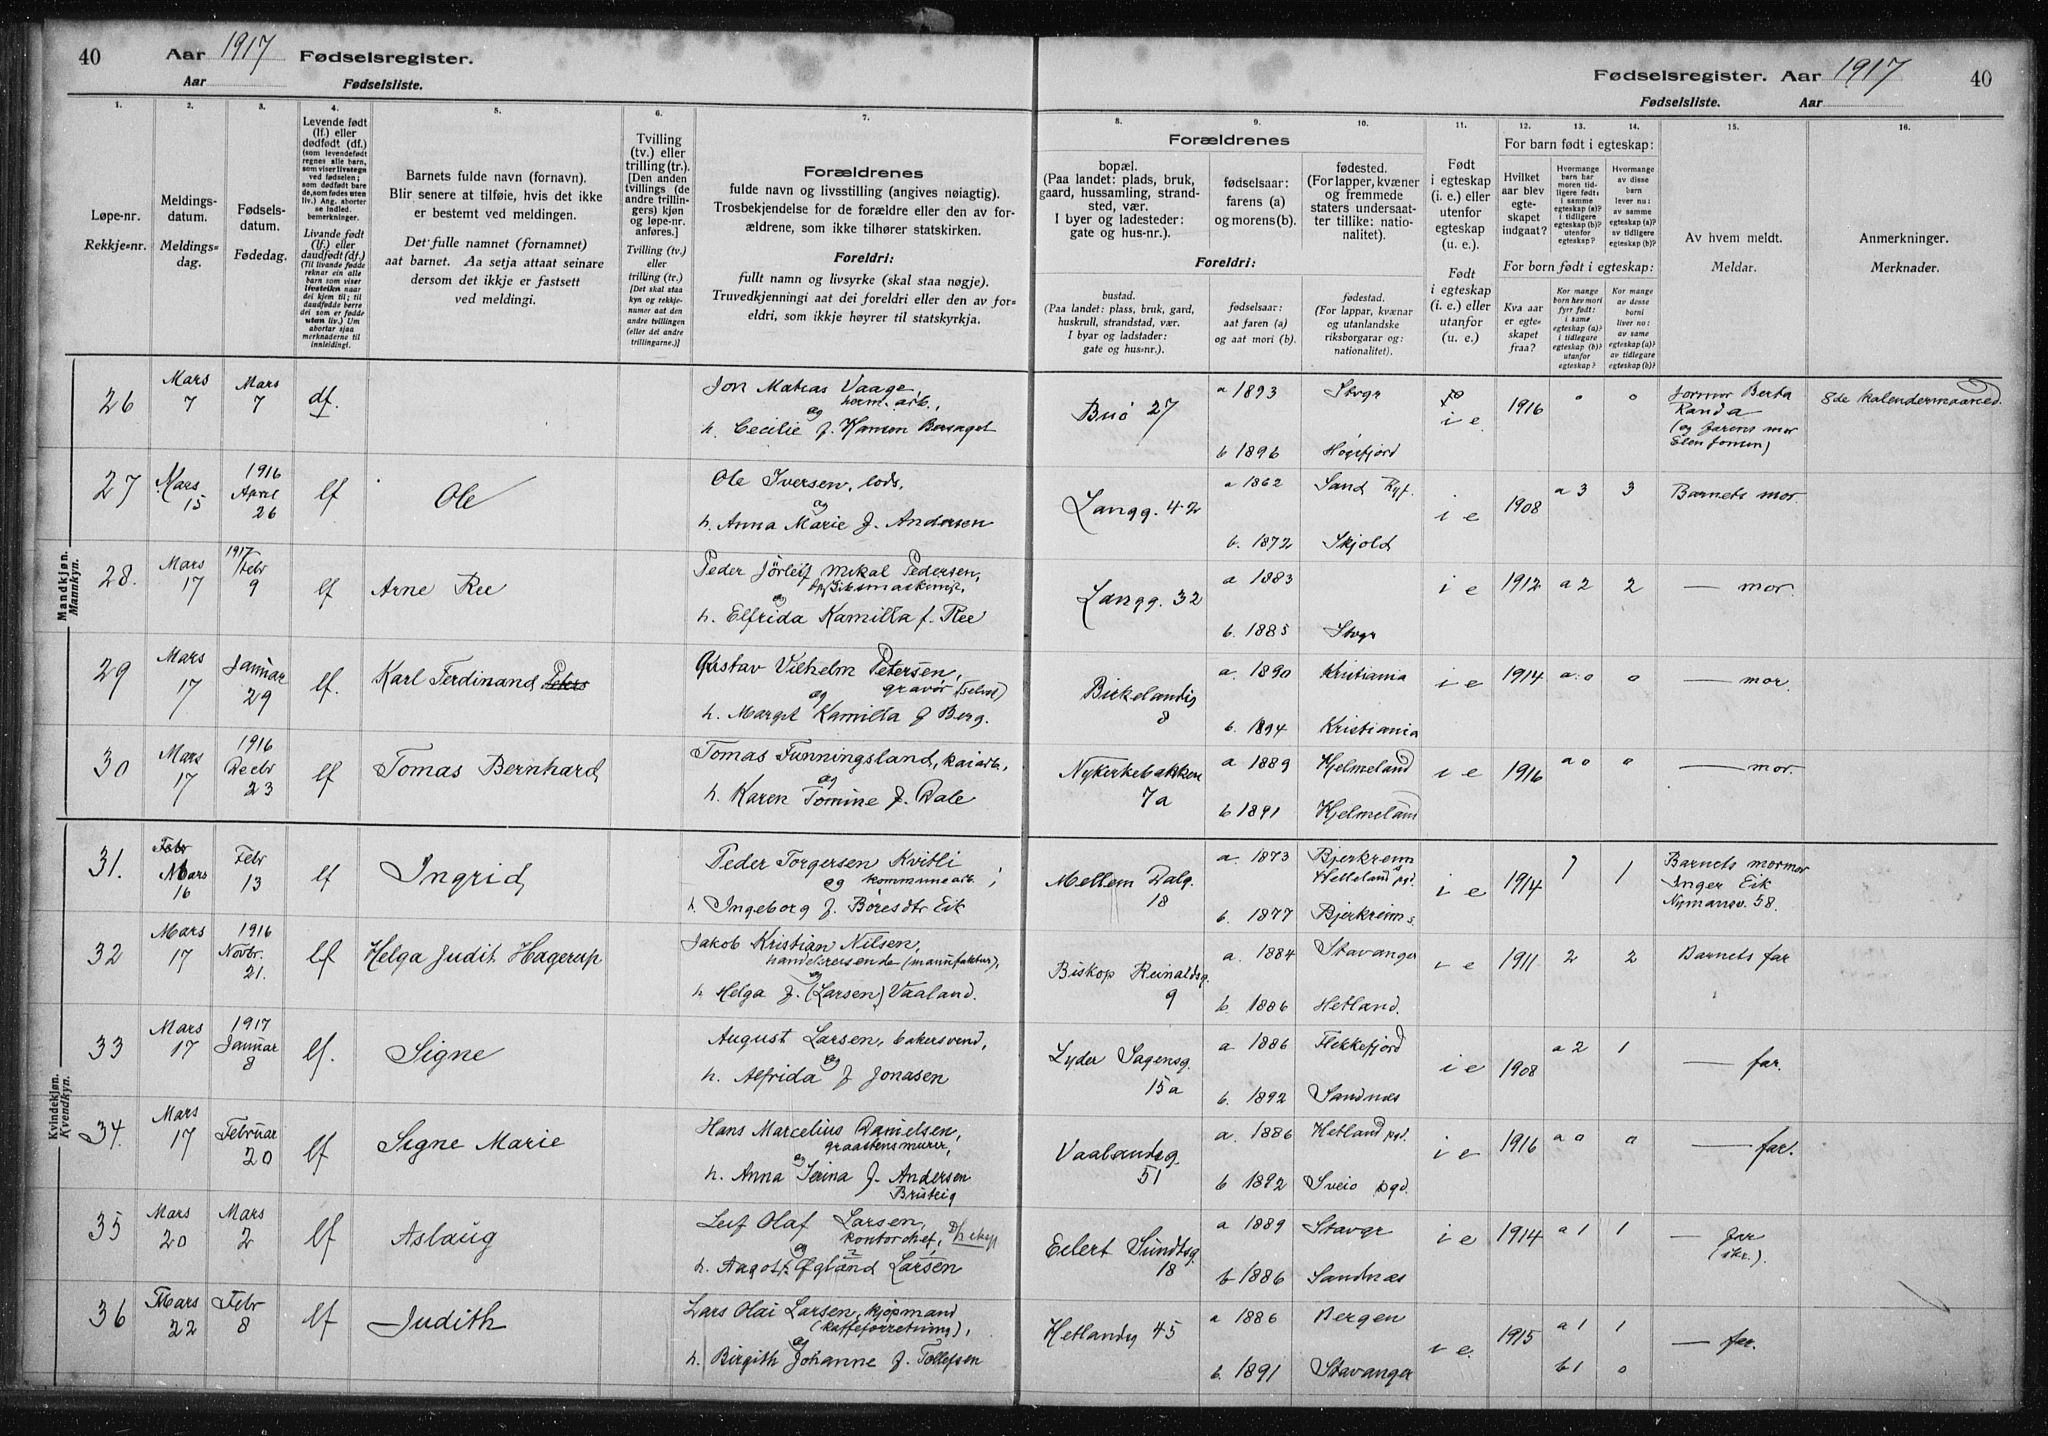 40 Aar 1917 Fødselsregister.
Aar Fødselsliste.
Fødselsregister. Aar 1917 40
Fødselsliste. Aar
1. 2. 3. 4. 5. 6. 7. 8. 9. 10. 11. 12. 13. 14. 15. 16.
Løpe-nr.
Rekkje-nr.
Meldings-
datum.
Meldings-
dag.
Fødsels-
datum.
Fødedag.
Levende født
(lf.) eller
dødfødt (df.)
(som levendefødt
regnes alle barn,
som viser livstegn
ved fødselen;
som dødfødt bare
de, som fødes uten
liv.) Ang. aborter
se indled.
bemerkninger.
Livande født
(lf.) eller
daudfødt (df.)
(Til livande fødde
reknar ein alle
barn som viser
livsteikn naar
dei kjem til; til
daudfødde berre
dei som er fødde
utan liv.) Um
abortar sjaa
merknaderne til
innleidingi.
Barnets fulde navn (fornavn).
Blir senere at tilføie, hvis det ikke
er bestemt ved meldingen.
Det fulle namnet (fornamnet)
aat barnet. Aa setja attaat seinare
dersom det ikkje er fastsett
ved meldingi.
Tvilling
(tv.) eller
trilling (tr.).
[Den anden
tvillings (de
andre trillin-
gers) kjøn
og løpe-nr.
anføres.]
Tvilling (tv.)
eller
trilling (tr.)
[Det skal staa
kyn og rekkje-
numer aat den
andre tvillingen
(eller dei andre
trillingarne.)]
Forældrenes
fulde navn og livsstilling (angives nøiagtig).
Trosbekjendelse for de forældre eller den av for-
ældrene, som ikke tilhører statskirken.
Foreldri:
fullt namn og livsyrke (skal staa nøgje).
Truvedkjenningi aat dei foreldri eller den av for-
eldri, som ikkje høyrer til statskyrkja.
Forældrenes
bopæl.
(Paa landet: plads, bruk,
gaard, hussamling, strand-
sted, vær.
I byer og ladesteder:
gate og hus-nr.).
fødselsaar:
farens (a)
og morens (b).
fødested.
(For lapper, kvæner
og fremmede
staters undersaat-
ter tillike: natio-
nalitet).
Foreldri:
bustad.
(Paa landet: plass, bruk, gard,
huskrull, strandstad, vær.
I byar og ladstader:
gate og hus-nr.).
fødselsaar:
aat faren (a)
og aat mori (b).
fødestad.
(For lappar, kvænar
og utanlandske
riksborgarar og:
nationalitet).
Født
i egteskap
(i. e.) eller
utenfor
egteskap
(u. e.).
Født
i egteskap
(i. e.) eller
utanfor
(u. e.).
For barn født i egteskap:
Hvilket
aar blev
egte-
skapet
indgaat?
Hvormange
barn har
moren tid-
ligere født:
i samme
egteskap (a)?
i tidligere
egteskap (b)?
utenfor
egteskap?
Hvormange
av disse
barn
lever nu:
av samme
egteskap (a)?
av tidligere
egteskap (b)?
For born født i egteskap:
Kva aar
er egte-
skapet
fraa?
Kor mange
born hev mori
fyrr født:
i same
egteskap (a)?
i tidlegare
egteskap (b)?
utanfor
egteskap?
Kor mange
av desse
borni
liver no:
av same
egteskap (a)?
av tidlegare
egteskap (b)?
Av hvem meldt.
Meldar.
Anmerkninger.
Merknader.
Mandkjøn.
Mannkyn.
26 Mars 7 Mars 7 df.
Jon Matias Vaage,
herm. arb.,
og
h. Cecilie f. Hansen Bersaget
Buø 27
a 1893 Stvgr
b 1896 Høgsfjord
i e 1916 0 0
Jormor Berta
Randa
(og farens mor
Elen Jonsen)
8de kalendermaaned.
27 Mars 15 1916 April 26 lf Ole
Ole Iversen, lods,
og
h. Anna Marie f. Andersen
Langg. 42
a 1862 Sand Ryf.
b. 1872 Skjold
i e 1908 a 3 3 Barnets mor
28. Mars 17 1917 Febr 9 lf Arne Ree
Peder Jørleif Mikal Pedersen,
og
h. Elfrida Kamilla f. Ree
Langg. 32
a 1883
b. 1885 Stvgr
i e 1912 a 2 2 — mor.
29 Mars 17 Januar 29 lf. Karl Ferdinand Peters
Gustav Vilhelm Petersen,
gravør (selvst)
og
h. Margit Kamilla f Berg.
Birkelandsg
8
a. 1890 Kristiania
b. 1894 Kristiania
i e 1914 a: 0 0 — mor.
30 Mars 17 1916 Decbr 23 lf Tomas Bernhard
Tomas Funningsland, kaiarb.,
og
h. Karen Tomine f. Dale
Nykirkebakken
7a
a 1889 Hjelmeland
b 1891 Hjelmeland
i e 1916 a 0 0 — mor.
Kvindekjøn.
Kvendkyn.
31. Febr Mars 16 Febr 13 lf Ingrid
Peder Torgersen Kvitli
og kommunearb.;
h. Ingeborg f. Børesdtr Eik
Mellem Dalg.
18
a. 1873 Bjerkreims
Helleland pgd.
b. 1877 Bjerkreims.
i e 1914 1 1
Barnets mormor
Inger Eik
Nymansv. 58.
32 Mars 17 1916 Novbr. 21. lf Helga Judit Hagerup
Jakob Kristian Nilsen,
handelsreisende (manufaktur),
og
h Helga f. (Larsen) Vaaland.
Biskop Reinaldsg.
9
a. 1884 Stavanger
b. 1886 Hetland.
i e 1911 2 2 Barnets far
33 Mars 17 1917 Januar 8 lf. Signe
August Larsen, bakersvend,
og
h. Alfrida f Jonasen
Lyder Sagensg.
15a
a. 1886 Flekkefjord
b. 1892 Sandnæs
i e 1908 a 2 1 — far.
34. Mars 17 Februar 20 lf Signe Marie
Hans Marcelius Danielsen,
graastensmurer,
og
h. Anna Serina f. Andersen
Vaalandsg.
51
a. 1886 Hetland pgd.
b 1892 Sveio pgd.
i e 1916 a 0 0 — far.
35 Mars 20 Mars 2 lf Aslaug
Leif Olaf Larsen,
kontorchef,
og
h. Aagot Øgland Larsen
Eilert Sundtsg.
18
a 1889 Stavgr
b 1886 Sandnæs
i e 1914 a 1 1 — far
(skr.).
36 Mars 22 Febr 8 lf Judith
Lars Olai Larsen, kjøpmand
(kaffeforretning),
og
h. Birgith Johanne f. Tollefsen
Hetlandsg 45
a 1886 Bergen
b. 1891 Stavanger
i e. 1915 a 1 1
b 1 0 — far.